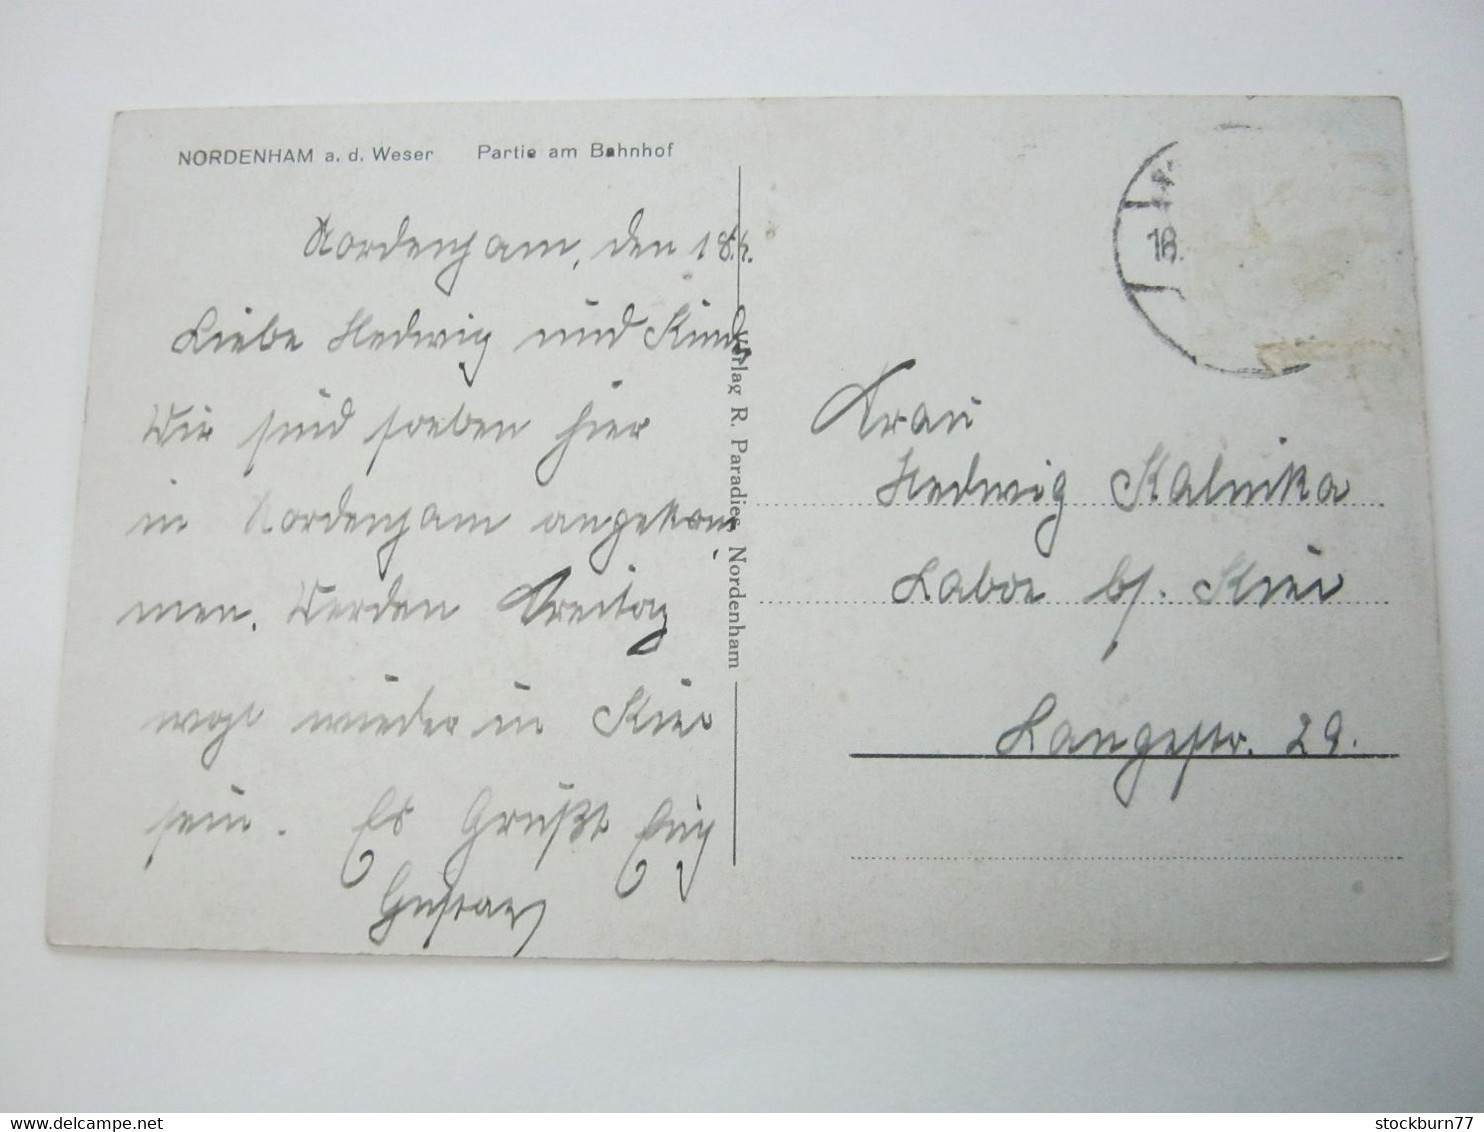 NORDENHAM a. d. Weser Partie am Bahnhof
Nordenham, den 18.
Liebe Hedwig und Kinder
Wir sind soeben hier
in Nordenham angekom
men. Werden Freitag
wohl wieder in Kiel
sein. Es Grüßt Euch
Gustav
Verlag R. Paradies, Nordenham
18.
Frau
Hedwig Kalnika
Laboe b/. Kiel
Langestr. 29.
stockburn77